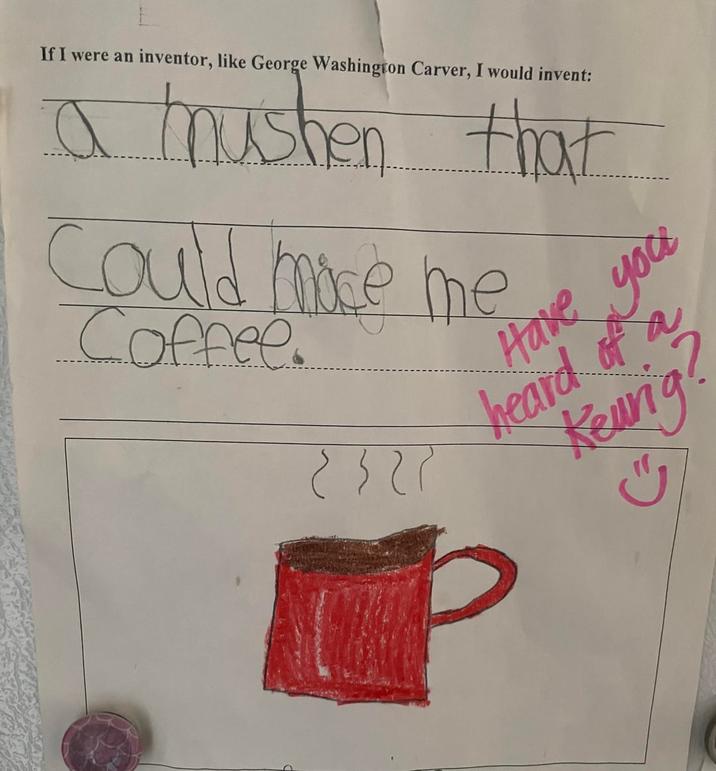 If I were an inventor, like George Washington Carver, I would invent:
a mushen that
Could mace me
Coffee.
Have you
heard of a
Keurig?